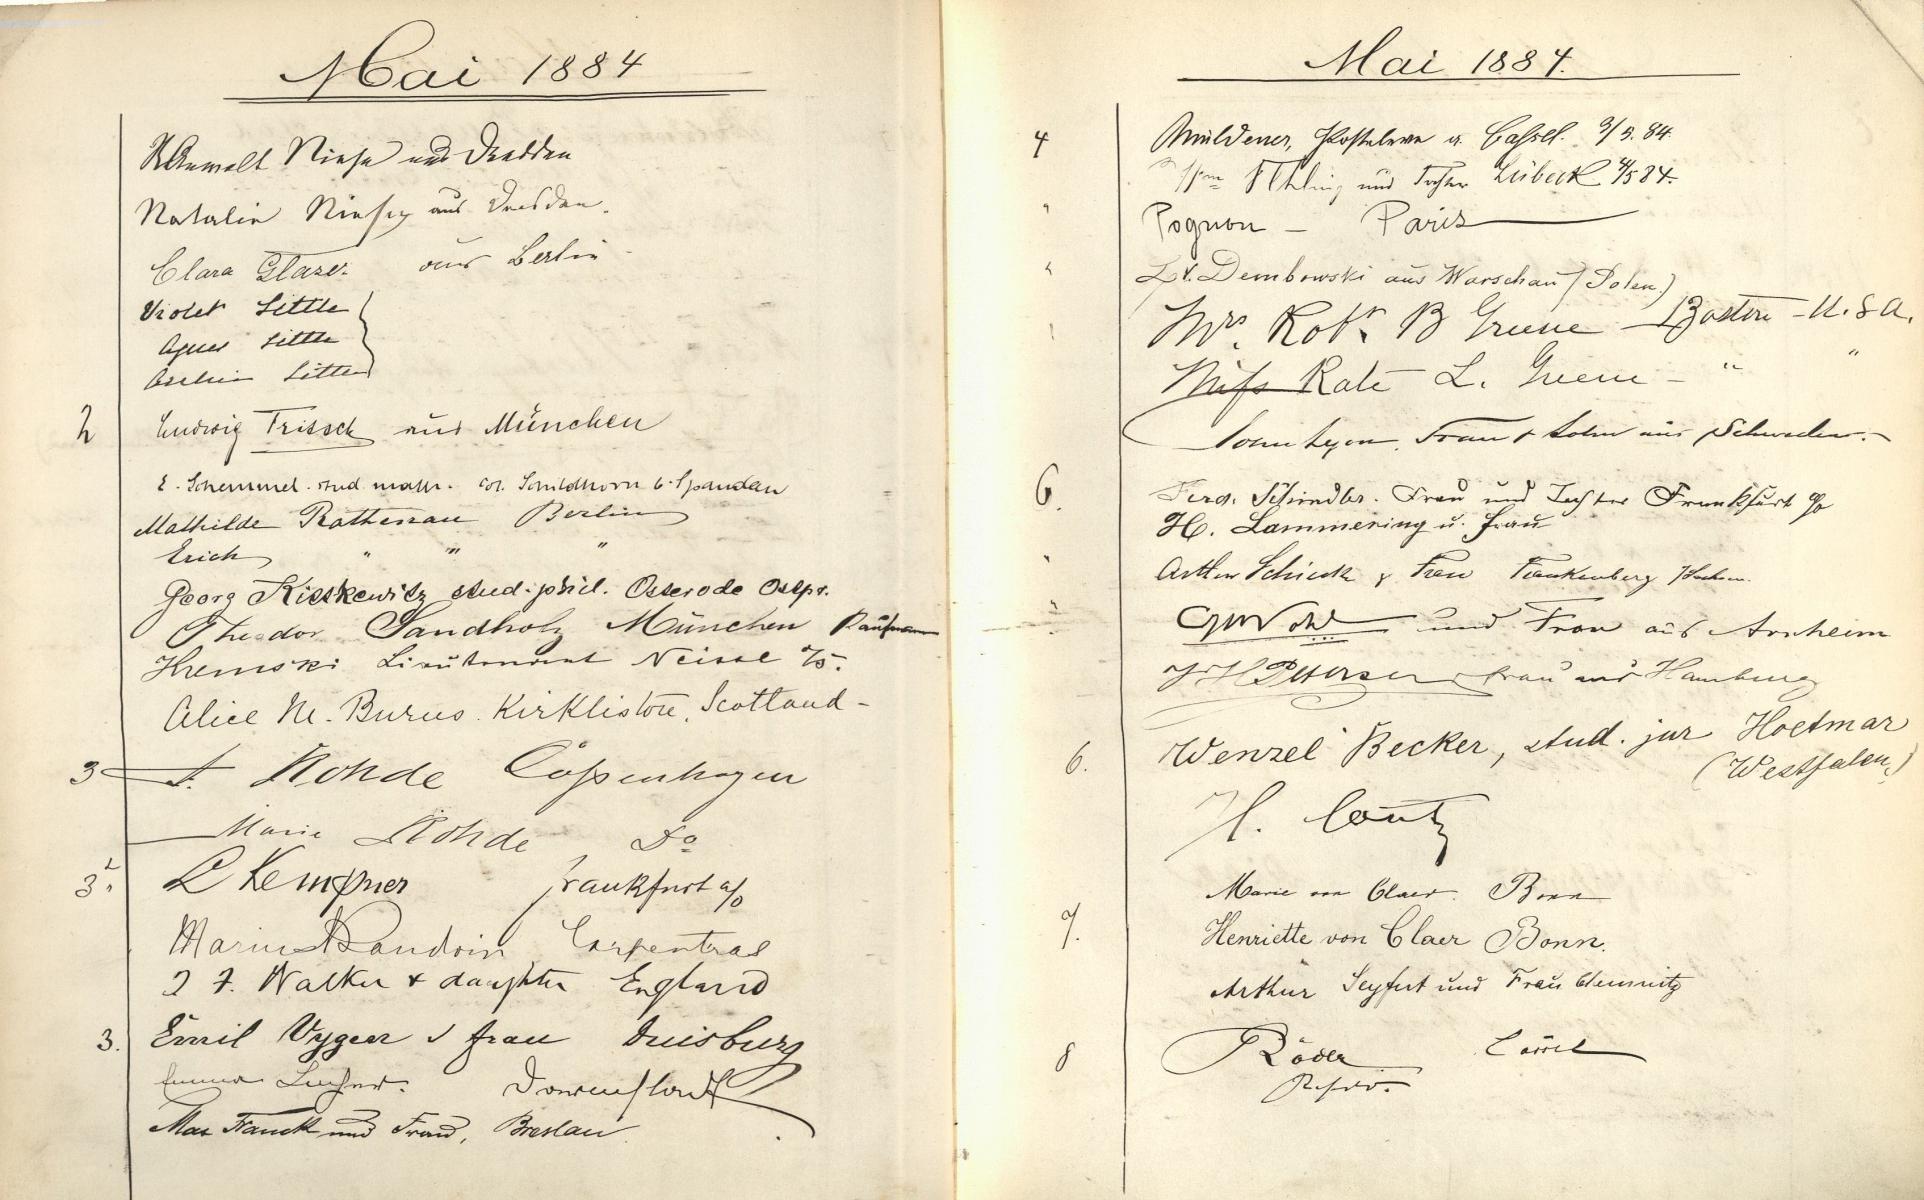 Mai 1884
RAnwalt Niese aus Dresden
Natalie Niese aus Dresden.
Clara Glaser aus Berlin
Violet Little
Agnes Little
Little
2 Ludwig Trissch aus München
E. Schemmel. stud. math. Schildhorn b. Spandau
Mathilde Rathenau Berlin
Erich " " "
Georg Kieskewitz stud. phil. Osterode Ostpr.
Theodor Sandholz München Kaufmann
Kremski Lieutenant Neisse
Alice M. Burns. Kirkliston, Scotland -
3 Rohde Copenhagen
Marie Rohde Do
3. L Kempner Frankfurt a/o
Baudoin Carpentras
J F. Walker + daughter England
3. Emil Vygen & frau Duisburg
Darmstadt
Max Franck und Frau, Breslau
Mai 1884.
4 Müldener, a. Cassel. 3/5. 84.
und Tochter Lübeck 4/5 84.
" Pognon - Paris
" L. v. Dembowski aus Warschau (Polen.)
" Mrs. Robt. B Greene - Boston - U. S. A.
Miss Kate L. Greene - " "
Frau & Sohn aus Schweden.
6. Ferd. Schindler. Frau und Tochter Frankfurt a/o
H. Lammering u. Frau
" Arthur Schieck & Frau Frankenberg i/Sachsen.
" und Frau aus Arnheim
J H Petersen frau aus Hamburg
6. Wenzel Becker, stud. jur Hoetmar
(Westfalen.)
H.
Marie von Claer. Bonn
7. Henriette von Claer Bonn.
Arthur Seyfert und Frau Chemnitz
8 Röder Cassel